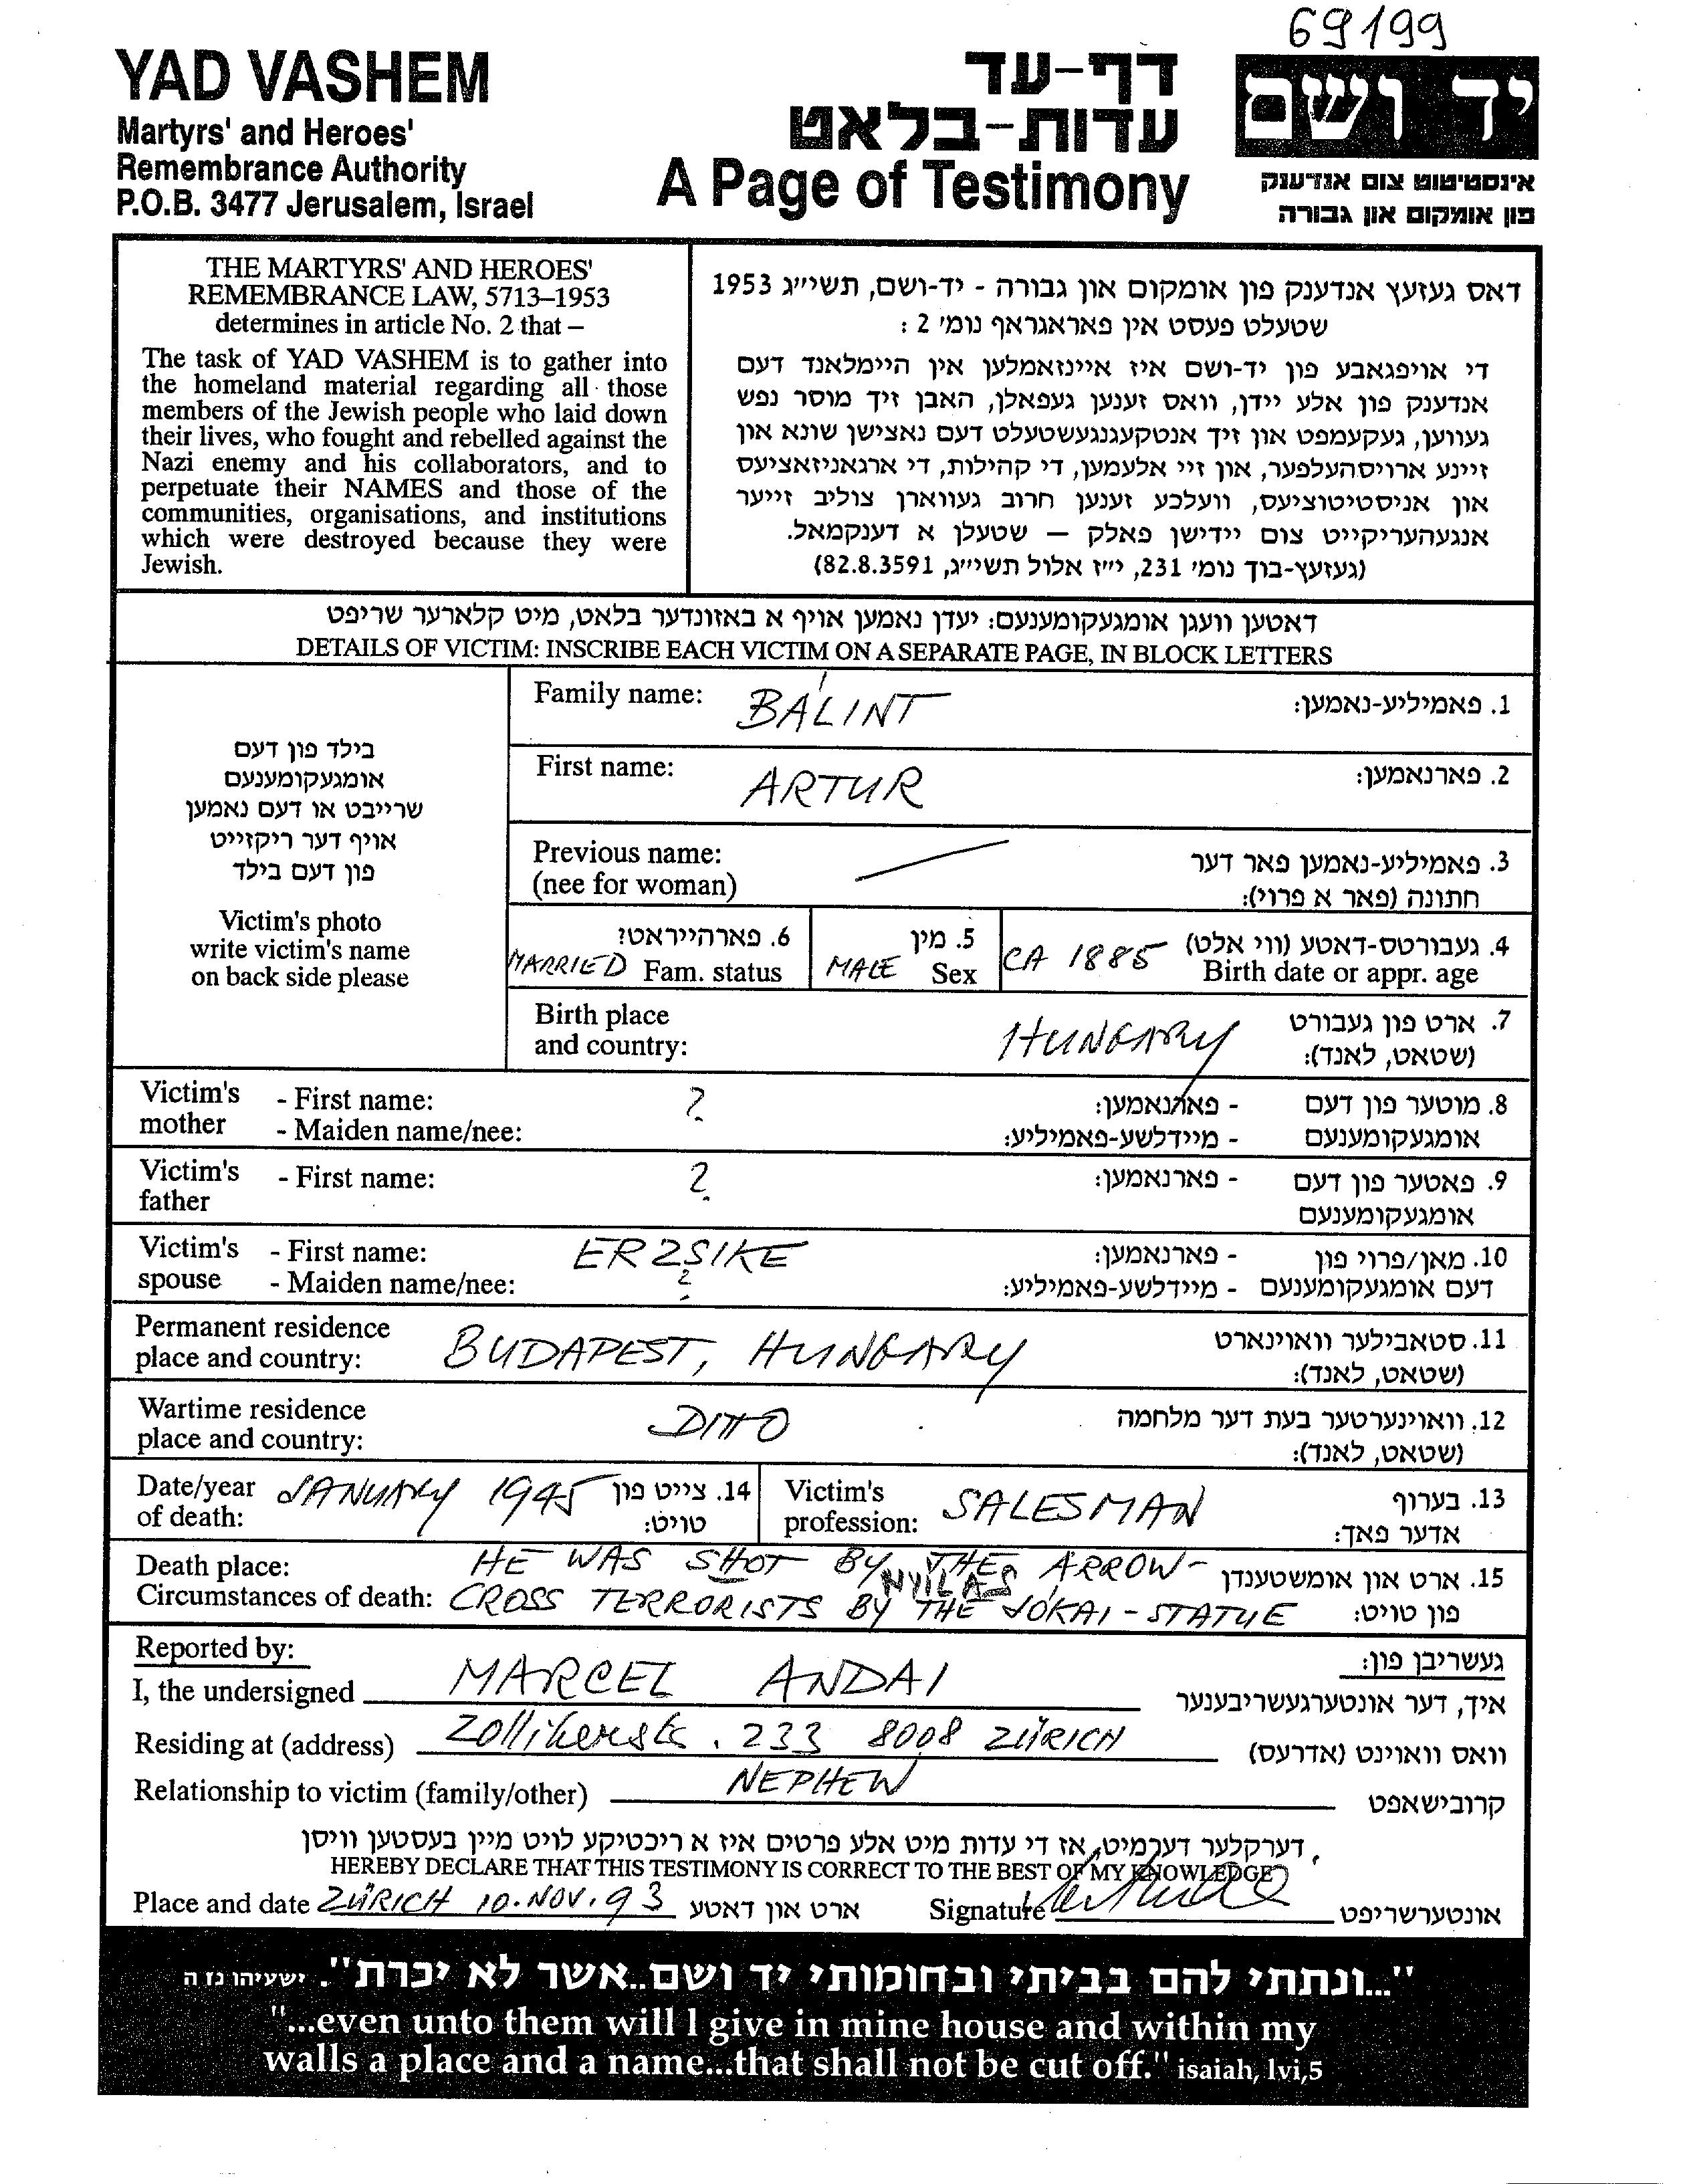 69199
YAD VASHEM
Martyrs' and Heroes'
Remembrance Authority
P.O.B. 3477 Jerusalem, Israel
דף-עד
עדות-בלאט
A Page of Testimony
יד ושם
אינסטיטוט צום אנדענק
פון אומקום און גבורה
THE MARTYRS' AND HEROES'
REMEMBRANCE LAW, 5713–1953
determines in article No. 2 that –
The task of YAD VASHEM is to gather into
the homeland material regarding all those
members of the Jewish people who laid down
their lives, who fought and rebelled against the
Nazi enemy and his collaborators, and to
perpetuate their NAMES and those of the
communities, organisations, and institutions
which were destroyed because they were
Jewish.
דאס געזעץ אנדענק פון אומקום און גבורה - יד-ושם, תשי״ג 1953
שטעלט פעסט אין פאראגראף נומ׳ 2 :
די אויפגאבע פון יד-ושם איז איינזאמלען אין היימלאנד דעם
אנדענק פון אלע יידן, וואס זענען געפאלן, האבן זיך מוסר נפש
געווען, געקעמפט און זיך אנטקעגנגעשטעלט דעם נאצישן שונא און
זיינע ארויסהעלפער, און זיי אלעמען, די קהילות, די ארגאניזאציעס
און אניסטיטוציעס, וועלכע זענען חרוב געווארן צוליב זייער
אנגעהעריקייט צום יידישן פאלק — שטעלן א דענקמאל.
(געזעץ-בוך נומ׳ 231, י״ז אלול תשי״ג, 82.8.3591)
דאטען וועגן אומגעקומענעם: יעדן נאמען אויף א באזונדער בלאט, מיט קלארער שריפט
DETAILS OF VICTIM: INSCRIBE EACH VICTIM ON A SEPARATE PAGE, IN BLOCK LETTERS
בילד פון דעם
אומגעקומענעם
שרייבט או דעם נאמען
אויף דער ריקזייט
פון דעם בילד
Victim's photo
write victim's name
on back side please
Family name: BÁLINT 1. פאמיליע-נאמען:
First name: ARTUR 2. פארנאמען:
Previous name: 3. פאמיליע-נאמען פאר דער
(nee for woman) חתונה (פאר א פרוי):
6. פארהייראט? 5. מין 4. געבורטס-דאטע (ווי אלט)
MARRIED Fam. status MALE Sex CA 1885 Birth date or appr. age
Birth place 7. ארט פון געבורט
and country: HUNGARY (שטאט, לאנד):
Victim's - First name: ? - פארנאמען: 8. מוטער פון דעם
mother - Maiden name/nee: - מיידלשע-פאמיליע: אומגעקומענעם
Victim's - First name: ? - פארנאמען: 9. פאטער פון דעם
father אומגעקומענעם
Victim's - First name: ERZSIKE - פארנאמען: 10. מאן/פרוי פון
spouse - Maiden name/nee: ? - מיידלשע-פאמיליע: דעם אומגעקומענעם
Permanent residence 11. סטאבילער וואוינארט
place and country: BUDAPEST, HUNGARY (שטאט, לאנד):
Wartime residence 12. וואוינערטער בעת דער מלחמה
place and country: DITTO (שטאט, לאנד):
Date/year JANUARY 1945 14. צייט פון Victim's SALESMAN 13. בערוף
of death: טויט: profession: אדער פאך:
Death place: HE WAS SHOT BY THE ARROW- 15. ארט און אומשטענדן
NYILAS
Circumstances of death: CROSS TERRORISTS BY THE JÓKAI-STATUE פון טויט:
Reported by: געשריבן פון:
I, the undersigned MARCEL ANDAI איך, דער אונטערגעשריבענער
Residing at (address) Zollikerstr. 233 8008 ZÜRICH וואס וואוינט (אדרעס)
Relationship to victim (family/other) NEPHEW קרובישאפט
דערקלער דערמיט, אז די עדות מיט אלע פרטים איז א ריכטיקע לויט מיין בעסטען וויסן.
HEREBY DECLARE THAT THIS TESTIMONY IS CORRECT TO THE BEST OF MY KNOWLEDGE
Place and date ZÜRICH 10. NOV. 93 ארט און דאטע Signature אונטערשריפט
"...ונתתי להם בביתי ובחומותי יד ושם..אשר לא יכרת". ישעיהו נז ה
"...even unto them will I give in mine house and within my
walls a place and a name...that shall not be cut off." isaiah, lvi,5